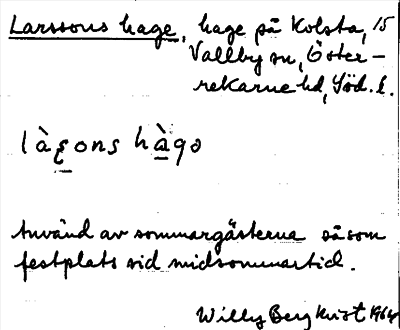 Larssons hage, hage på Kolsta, 15
Vallby sn, Öster-
rekarne hd, Söd. l.
làʂons hàgə
Använd av sommargästerna såsom
festplats vid midsommartid.
Willy Bergkvist 1964